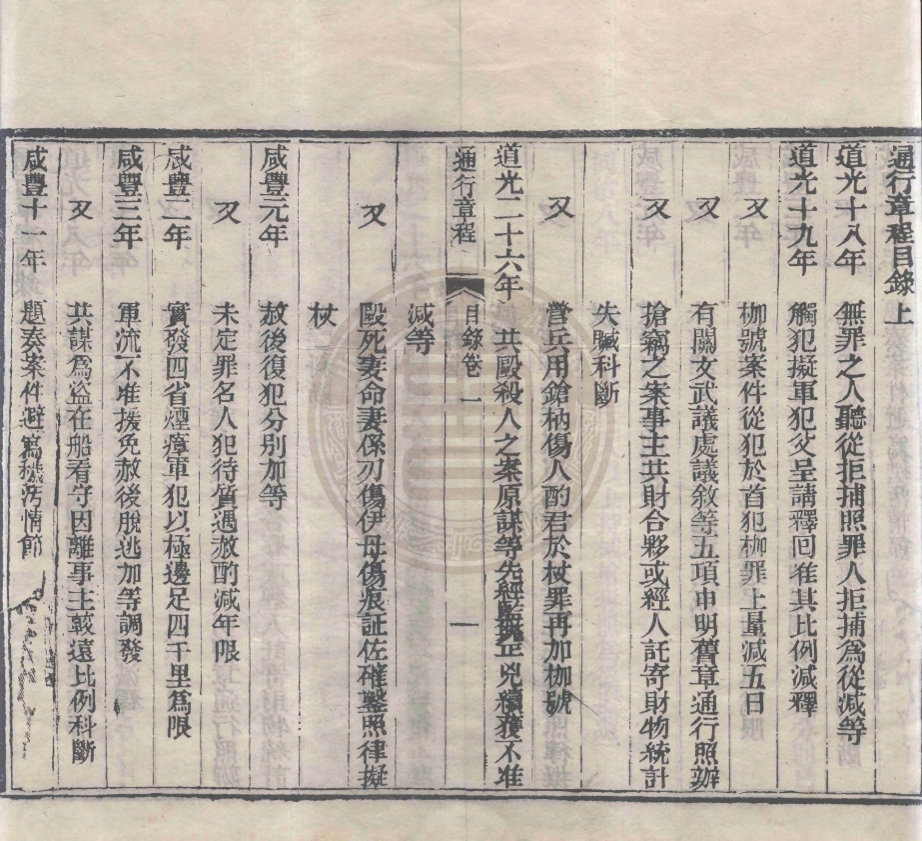 通行章程目錄上
道光十八年　無罪之人聽從拒捕照罪人拒捕爲從減等
道光十九年　觸犯擬軍犯父呈請釋回准其比例減釋
又　枷號案件從犯於首犯枷罪上量減五日
又　有關文武議處議敘等五項申明舊章通行照辦
又　搶竊之案事主共財合夥或經人託寄財物統計
失贓科斷
又　營兵用鎗柄傷人酌君於杖罪再加枷號
道光二十六年　共毆殺人之案原謀等先經監斃正兇續獲不准
通行章程　目錄卷一　一
減等
又　毆死妻命妻係刃傷伊母傷痕証佐確鑿照律擬
杖
咸豐元年　赦後復犯分別加等
又　未定罪名人犯待質遇赦酌減年限
咸豐二年　實發四省煙瘴軍犯以極邊足四千里爲限
咸豐三年　軍流不准援免赦後脫逃加等調發
又　共謀爲盜在船看守因離事主較遠比例科斷
咸豐十一年　題奏案件避寫情節